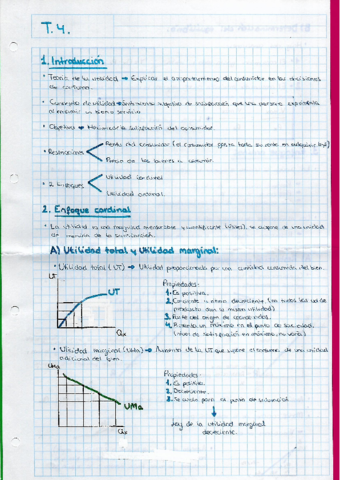 T.4.
1. Introducción
• Teoría de la utilidad → Explicar el comportamiento del consumidor en las decisiones
de consumo.
• Concepto de utilidad → Sentimiento subjetivo de satisfacción que una persona experimenta
al consumir un bien o servicio.
• Objetivo → Maximizar la satisfacción del consumidor.
• Restricciones
Renta del consumidor (el consumidor gasta toda su renta en
Precio de los bienes a consumir.
• 2 Enfoques
Utilidad cardinal
Utilidad ordinal.
2. Enfoque cardinal
• La utilidad es una magnitud medible y cuantificable (útiles), se dispone de una unidad
de medida de la satisfacción.
A) Utilidad total y utilidad marginal:
• Utilidad total (UT) → Utilidad proporcionada por una cantidad consumida del bien.
UT
UT
Qx
Propiedades:
1. Es positiva.
2. Creciente a ritmo decreciente
3. Parte del origen de coordenadas.
4. Presenta un máximo en el punto de saciedad.
• Utilidad marginal (UMa) → Aumento de la UT que supone el consumo de una unidad
adicional del bien.
UMa
UMa
Qx
Propiedades:
1. Es positiva.
2. Decreciente.
3. Se anula para su punto de saturación
Ley de la utilidad marginal
decreciente.